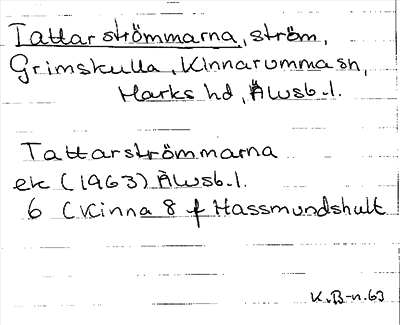 Tattarströmmarna, ström,
Grimskulla, Kinnarumma sn,
Marks hd, Älvsb. l.
Tattarströmmarna
ek (1963) Älvsb. l.
6 (Kinna 8 f Hassmundshult
K.B-n. 63